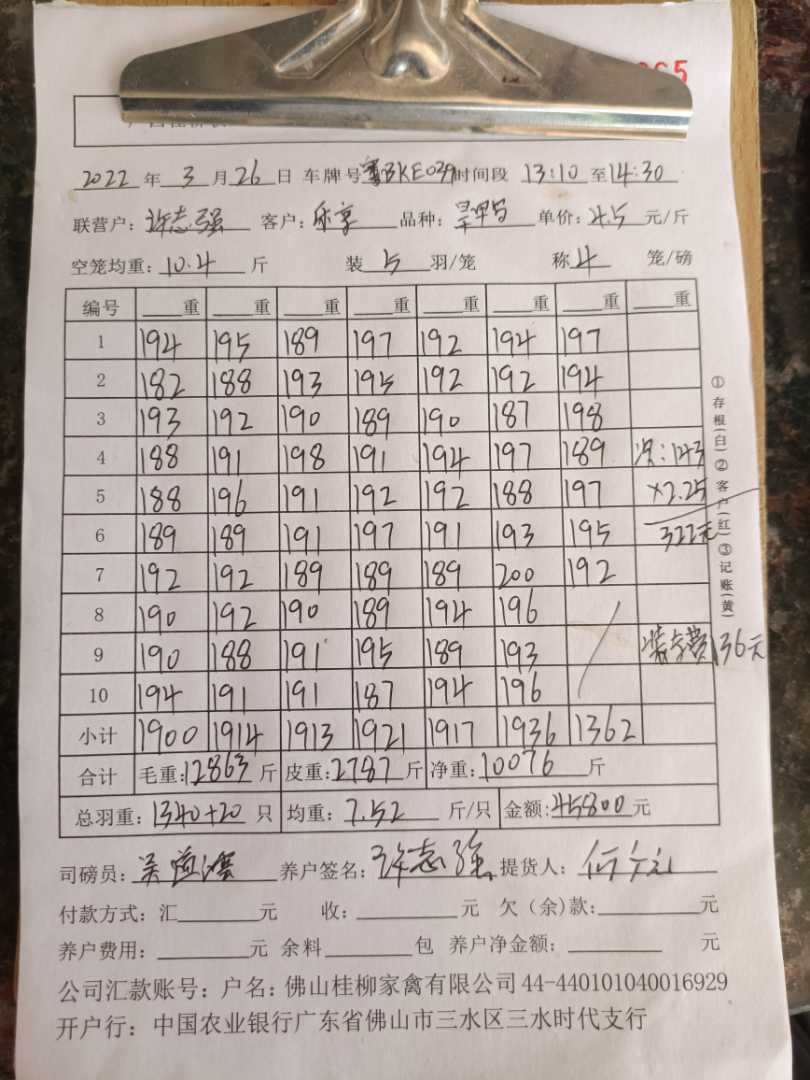 065
2022 年 3 月 26 日 车牌号 粤BKE039 时间段 13:10 至 14:30
联营户: 许志强 客户: 乐享 品种: 单价: 4.5 元/斤
空笼均重: 10.4 斤 装 5 羽/笼 称 4 笼/磅
编号 重 重 重 重 重 重 重 重
1 194 195 189 197 192 194 197
2 182 188 193 195 192 192 194
3 193 192 190 189 190 187 198
4 188 191 198 191 194 197 189 次:143
5 188 196 191 192 192 188 197 ×2.25
6 189 189 191 197 191 193 195 322元
7 192 192 189 189 189 200 192
8 190 192 190 189 194 196
9 190 188 191 195 189 193 装车费136元
10 194 191 191 187 194 196
小计 1900 1914 1913 1921 1917 1936 1362
合计 毛重: 12863 斤 皮重: 2787 斤 净重: 10076 斤
总羽重: 1340+20 只 均重: 7.52 斤/只 金额: 45800 元
司磅员: 养户签名: 许志强 提货人:
付款方式: 汇 元 收: 元 欠(余)款: 元
养户费用: 元 余料 包 养户净金额: 元
公司汇款账号: 户名: 佛山桂柳家禽有限公司 44-440101040016929
开户行: 中国农业银行广东省佛山市三水区三水时代支行
①存根(白)②客户(红)③记账(黄)